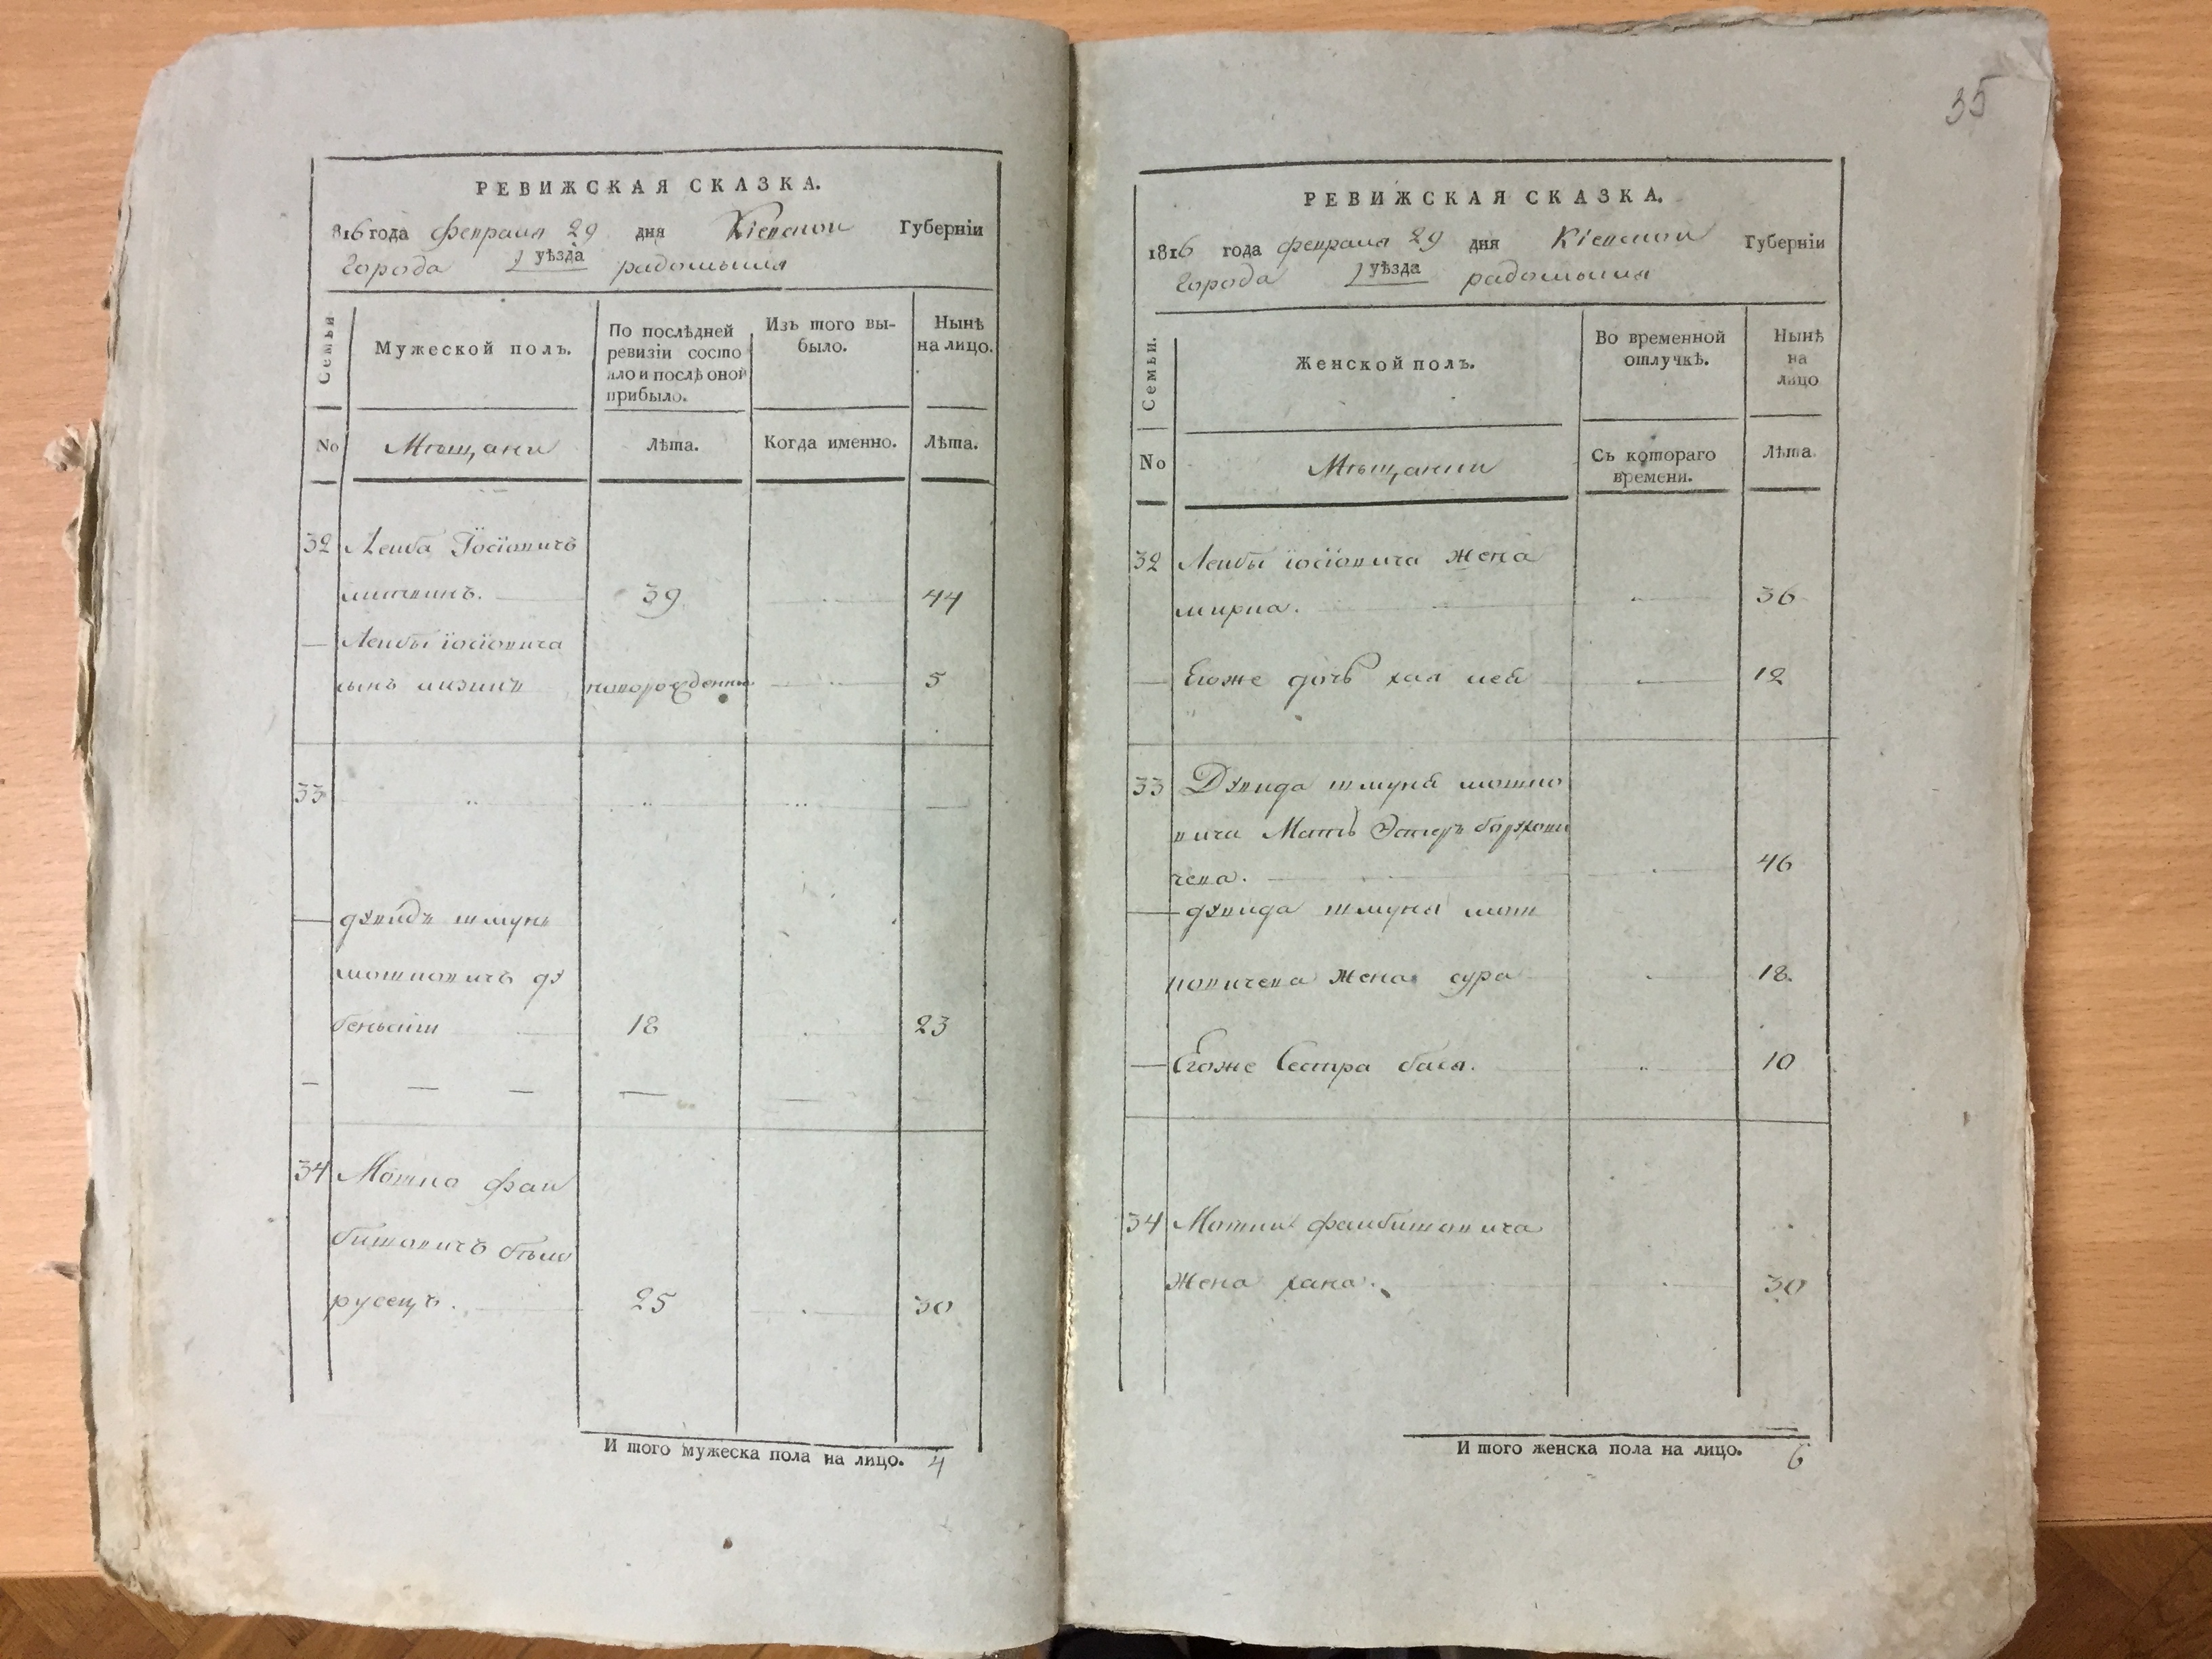 РЕВИЖСКАЯ СКАЗКА.
816 года февраля 29 дня Кіевской Губерніи
города уѣзда радомысля
Семьи
Мужеской полъ.
По послѣдней ревизіи состо
яло и послѣ оной прибыло.
Изъ того вы-
было.
Нынѣ
на лицо.
No Мѣщане Лѣта. Когда именно. Лѣта.
32 Лейба Іосіовичъ
39 44
Лейбы іосіовича
сынъ новорожденный 5
33
двидъ шмуль
мошковичъ ду
18 23
34 Мошко фаи
бишовичъ бѣло
русецъ. 25 30
И того мужеска пола на лицо. 4
35
РЕВИЖСКАЯ СКАЗКА.
1816 года февраля 29 дня Кіевской Губерніи
города уѣзда радомысля
Семьи.
Женской полъ.
Во временной
отлучкѣ.
Нынѣ
на
лицо
No Мѣщанки Съ котораго
времени. Лѣта
32 Лейбы іосіовича жена
мирка. 36
Егоже дочь хая лея 12
33 шмуля мошко
вича Мать Эстеръ
чева. 46
шмуля мош
ковичева жена сура 18.
Егоже Сестра бася. 10
34 Мошки фаибишовича
жена хана. 30
И того женска пола на лицо. 6